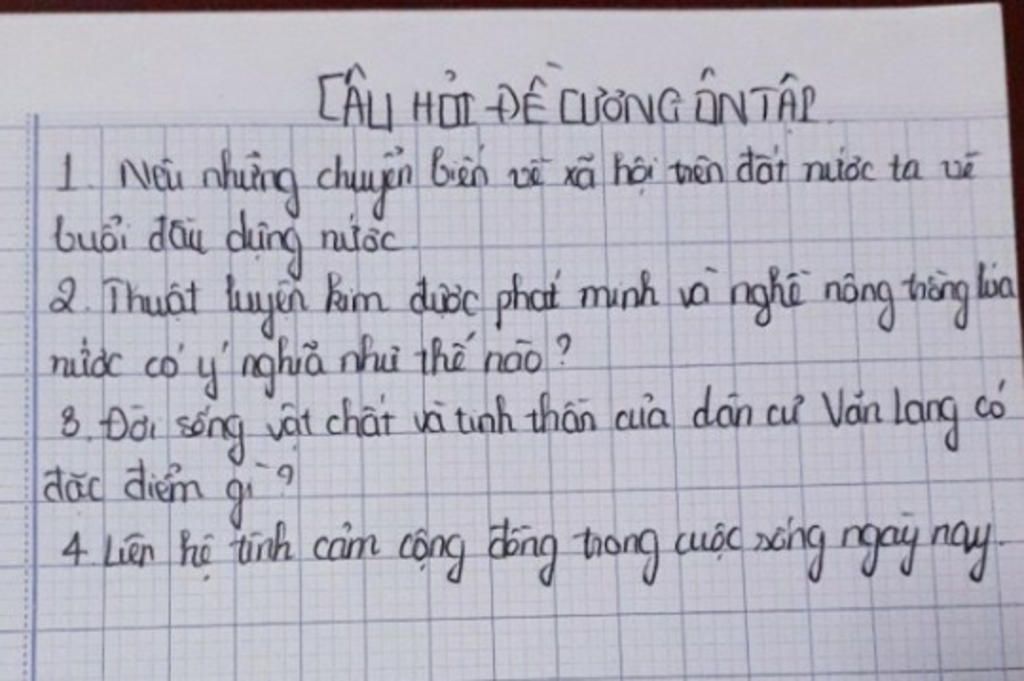 CÂU HỎI ĐỀ CƯƠNG ÔN TẬP
1. Nêu những chuyển biến về xã hội trên đất nước ta về
buổi đầu dựng nước
2. Thuật luyện kim được phát minh và nghề nông trồng lúa
nước có ý nghĩa như thế nào?
3. Đời sống vật chất và tinh thần của dân cư Văn Lang có
đặc điểm gì?
4 Liên hệ tình cảm cộng đồng trong cuộc sống ngày nay.